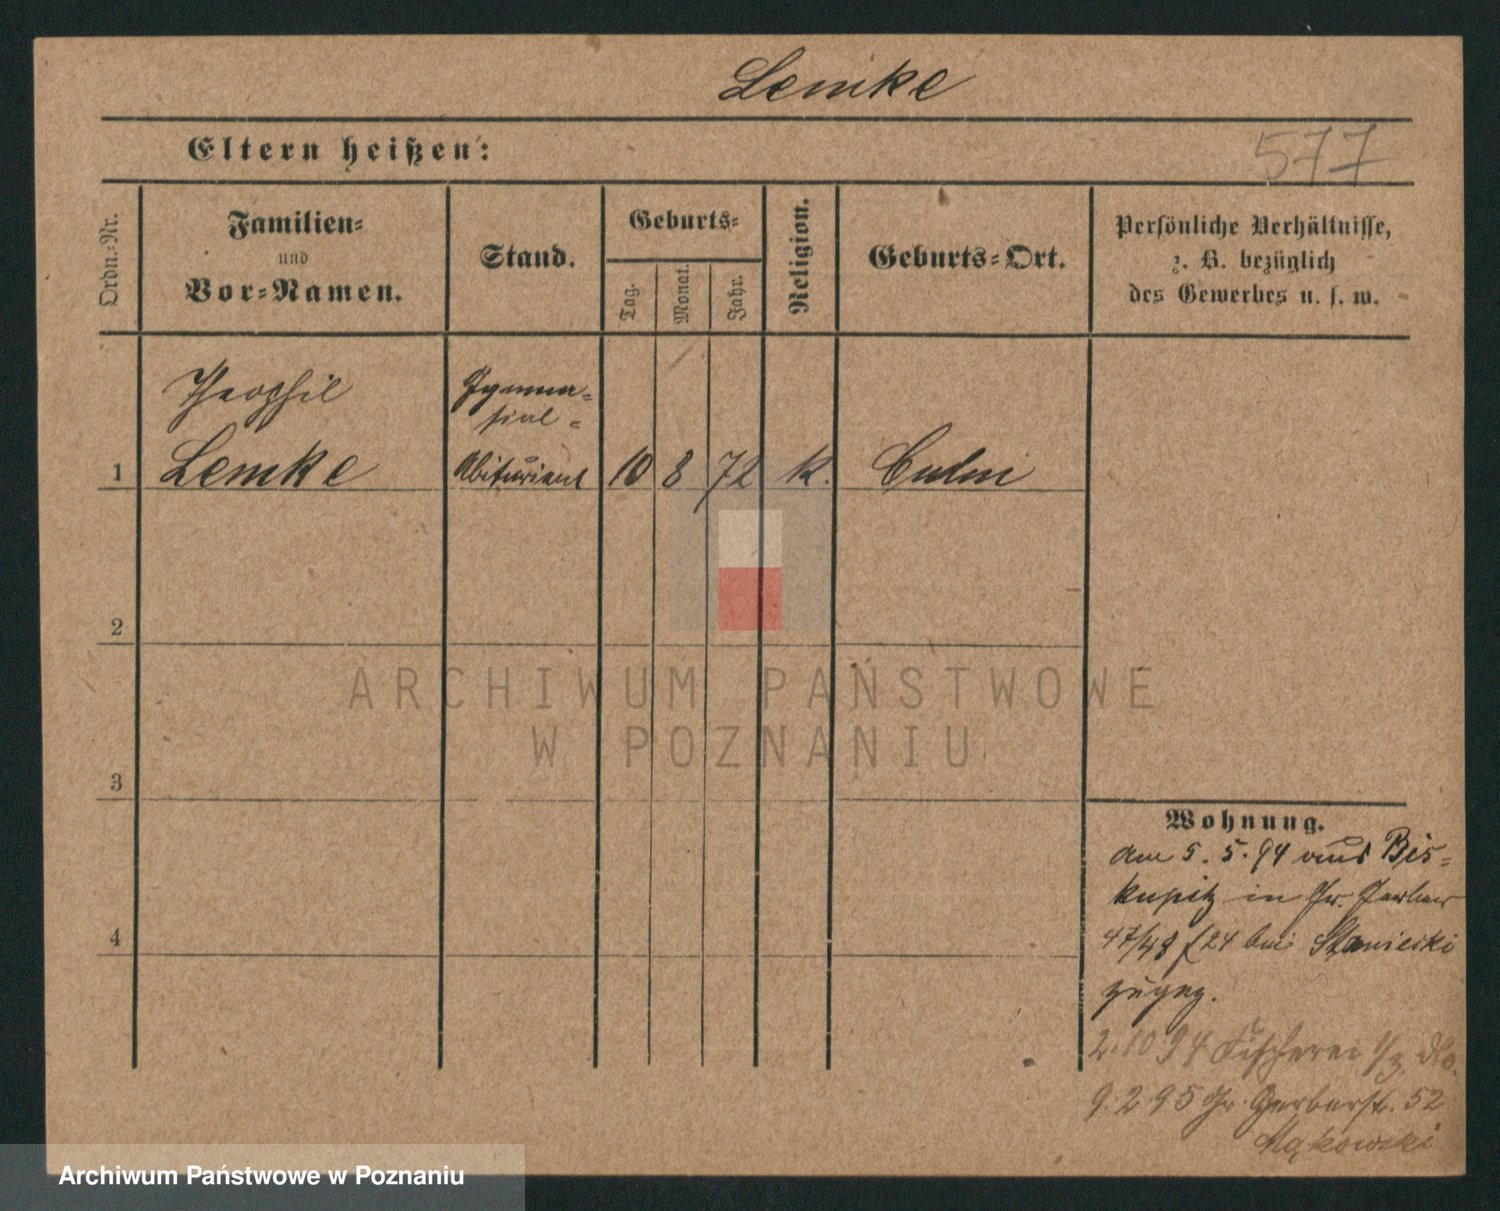 Lemke
Eltern heißen:
577
Ordn.-Nr.
Familien-
und
Vor-Namen.
Stand.
Geburts-
Tag.
Monat.
Jahr.
Religion.
Geburts-Ort.
Persönliche Verhältnisse,
z. B. bezüglich
des Gewerbes u. s. w.
Theophil
Gymna-
sial-
1 Lemke Abiturient 10 8 72 k. Culm
2
ARCHIWUM PAŃSTWOWE
W POZNANIU
3
Wohnung.
am 5. 5. 94 aus Bis-
kupitz in Gr. Gerber
47/48 bei
4
zugez.
2. 10 94 Fischerei
9. 2. 95 Gr. Gerberstr. 52
Mąkowski
Archiwum Państwowe w Poznaniu